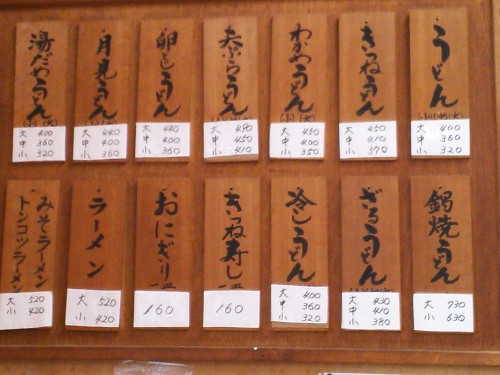 うどん
大 400
中 360
小 320
きつねうどん
大 450
中 410
小 370
わかめうどん
大 450
中 400
小 350
天ぷらうどん
大 490
中 450
小 410
卵とじうどん
大 480
中 400
小 360
月見うどん
大 480
中 400
小 360
湯だめうどん
大 400
中 360
小 320
鍋焼うどん
大 730
小 630
ざるうどん
大 430
中 410
小 380
冷しうどん
大 400
中 360
小 320
きつね寿し
160
おにぎり
160
ラーメン
大 520
小 420
みそラーメン
トンコツラーメン
大 520
小 420